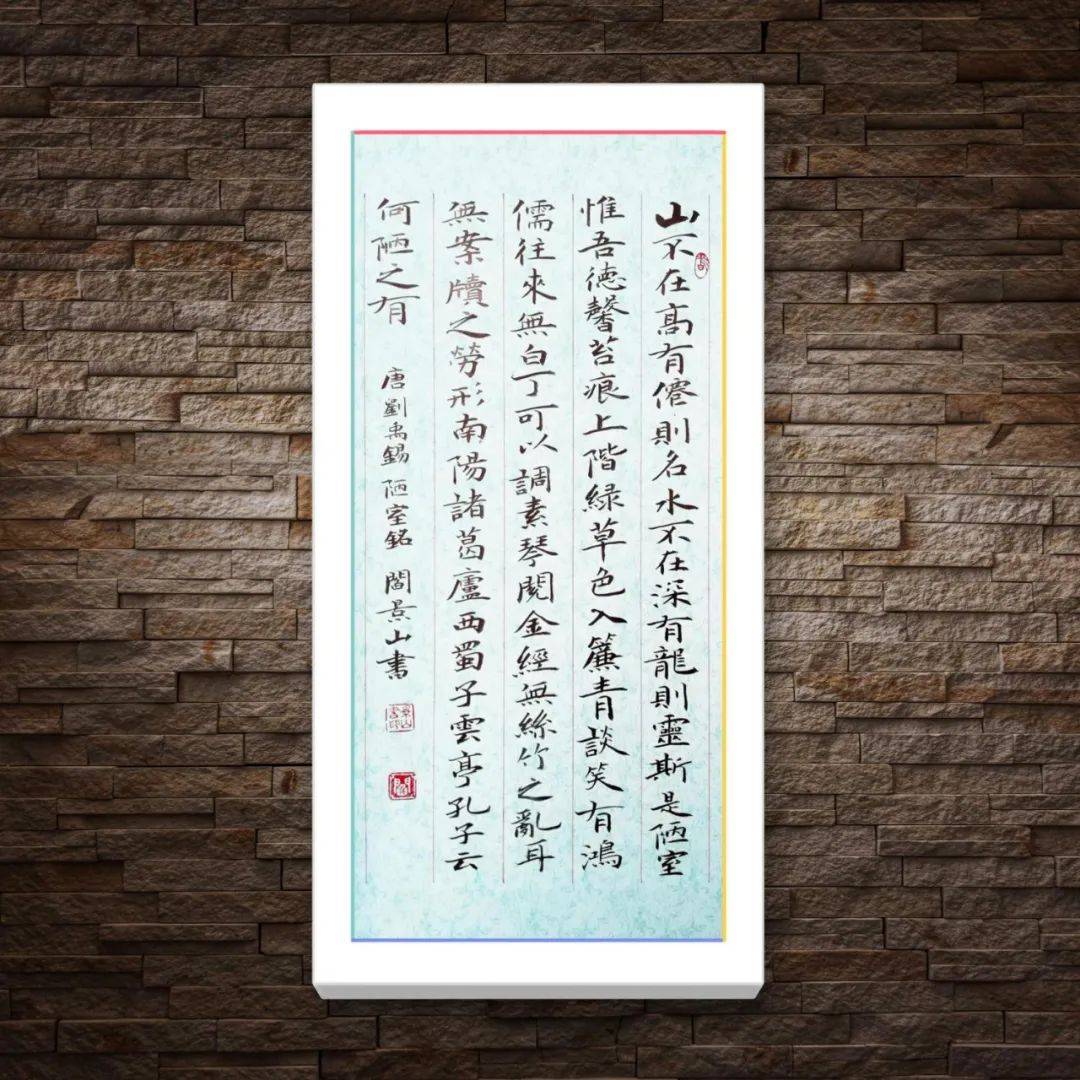 山不在高有僊則名水不在深有龍則靈斯是陋室
惟吾德馨苔痕上階緑草色入簾青談笑有鴻
儒往來無白丁可以調素琴閱金經無絲竹之亂耳
無案牘之勞形南陽諸葛廬西蜀子雲亭孔子云
何陋之有 唐劉禹錫陋室銘 閻景山書